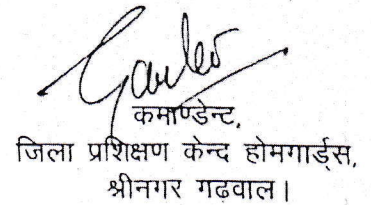 कमाण्डेन्ट,
जिला प्रशिक्षण केन्द होमगार्ड्स,
श्रीनगर गढवाल।